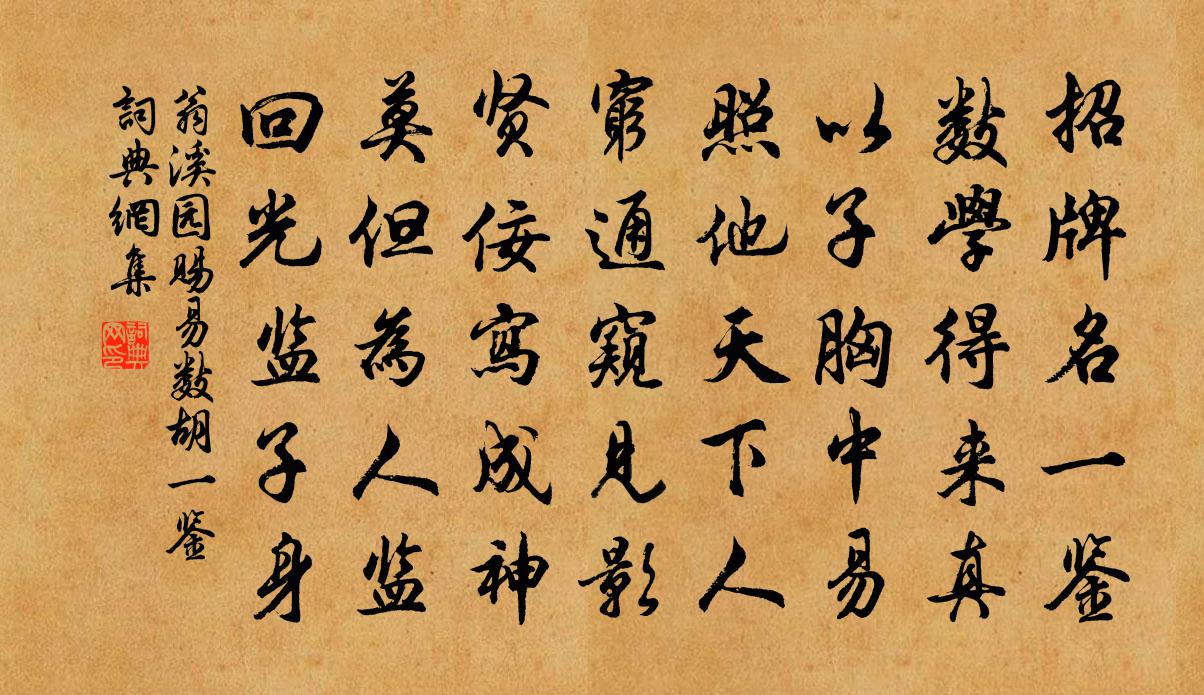 招牌名一鉴
数学得来真
以子胸中易
照他天下人
窮通窺見影
贤佞寫成神
莫但為人监
回光监子身
翁溪园赐易数胡一鉴
詞典網集
詞典网印